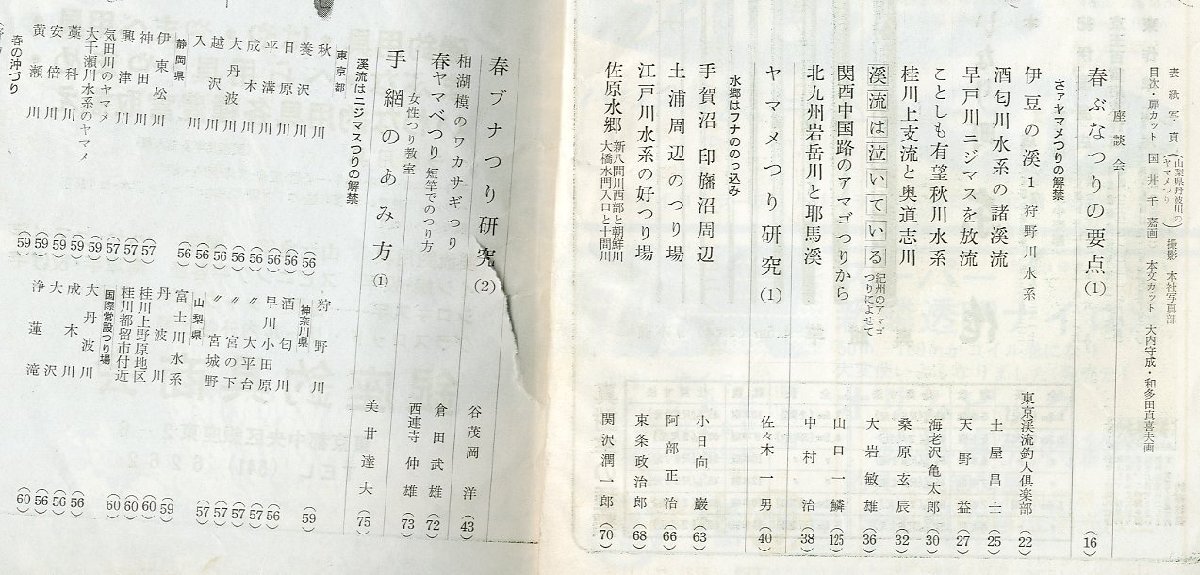 表紙写真(山梨県丹波川のヤマメつり) 撮影 本社写真部
目次・扉カット 国井千嘉画 本文カット 大内守成・和多田直喜夫画
座談会
春ぶなつりの要点(1) (16)
さァヤマメつりの解禁
伊豆の渓1 狩野川水系 東京渓流釣人倶楽部 (22)
酒匂川水系の諸渓流 土屋昌二 (25)
早戸川ニジマスを放流 天野益 (27)
ことしも有望秋川水系 海老沢亀太郎 (30)
桂川上支流と奥道志川 桑原玄辰 (32)
渓流は泣いている 紀州のアマゴつりによせて 大岩敏雄 (36)
関西中国路のアマゴつりから 山口一鱗 (125)
北九州岩岳川と耶馬溪 中村治 (38)
ヤマメつり研究(1) 佐々木一男 (40)
水郷はフナののっ込み
手賀沼 印旛沼周辺 小日向巌 (63)
土浦周辺のつり場 阿部正治 (66)
江戸川水系の好つり場 東条政治郎 (68)
佐原水郷 新八間川西部と朝鮮川 大橋水門入口と十間川 関沢潤一郎 (70)
春ブナつり研究(2) 谷茂岡洋 (43)
相湖模のワカサギつり
春ヤマベつり 短竿でのつり方 倉田武雄 (72)
女性つり教室 西連寺仲雄 (73)
手網のあみ方(1) 美廿達大 (75)
渓流はニジマスつりの解禁
東京都
秋川 (56)
養沢 (56)
日原川 (56)
平溝川 (56)
成木川 (56)
大丹波川 (56)
越沢 (56)
入川 (56)
静岡県
伊東松川 (57)
神田川 (57)
興津川 (57)
気田川のヤマメ (57)
大千瀬川水系のヤマメ
藁科川 (59)
安倍川 (59)
黄瀬川 (59)
春の沖づり (59)
狩野川 (59)
神奈川県
酒匂川 (56)
早川小田原 (56)
〃大平台 (57)
〃宮の下 (57)
〃宮城野 (57)
山梨県
富士川水系 (59)
丹波川 (60)
桂川上野原地区 (60)
桂川都留市付近 (60)
国際常設つり場
大丹波川 (56)
成木川 (56)
大沢 (56)
浄蓮滝 (60)